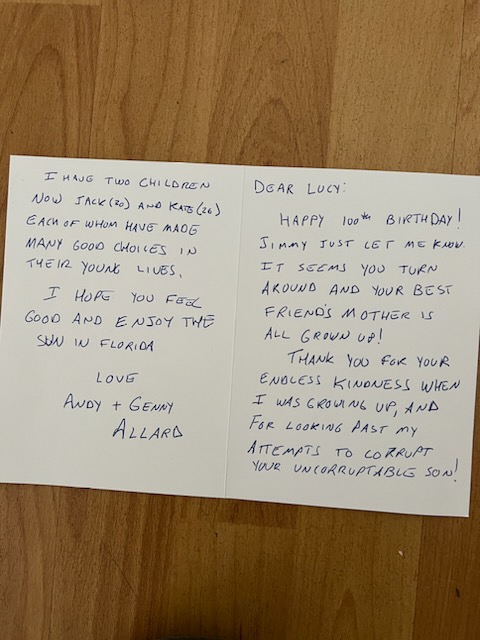 DEAR LUCY:
HAPPY 100TH BIRTHDAY!
JIMMY JUST LET ME KNOW.
IT SEEMS YOU TURN
AROUND AND YOUR BEST
FRIEND'S MOTHER IS
ALL GROWN UP!
THANK YOU FOR YOUR
ENDLESS KINDNESS WHEN
I WAS GROWING UP, AND
FOR LOOKING PAST MY
ATTEMPTS TO CORRUPT
YOUR UNCORRUPTABLE SON!
I HAVE TWO CHILDREN
NOW JACK AND KATE (26)
EACH OF WHOM HAVE MADE
MANY GOOD CHOICES IN
THEIR YOUNG LIVES.
I HOPE YOU FEEL
GOOD AND ENJOY THE
SUN IN FLORIDA
LOVE
ANDY + GENNY
ALLARD